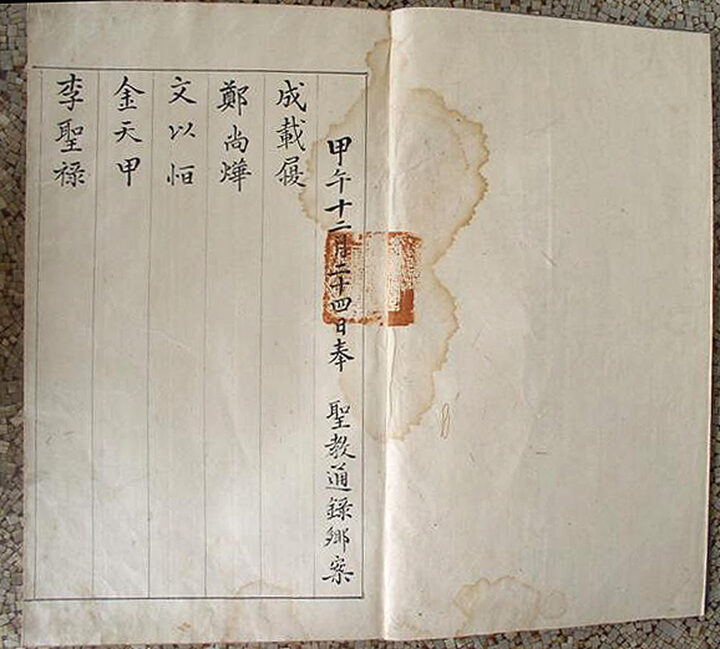 甲午十二月二十四日奉 聖教通錄鄉案
成載履
鄭尚燁
文以恒
金天甲
李聖祿